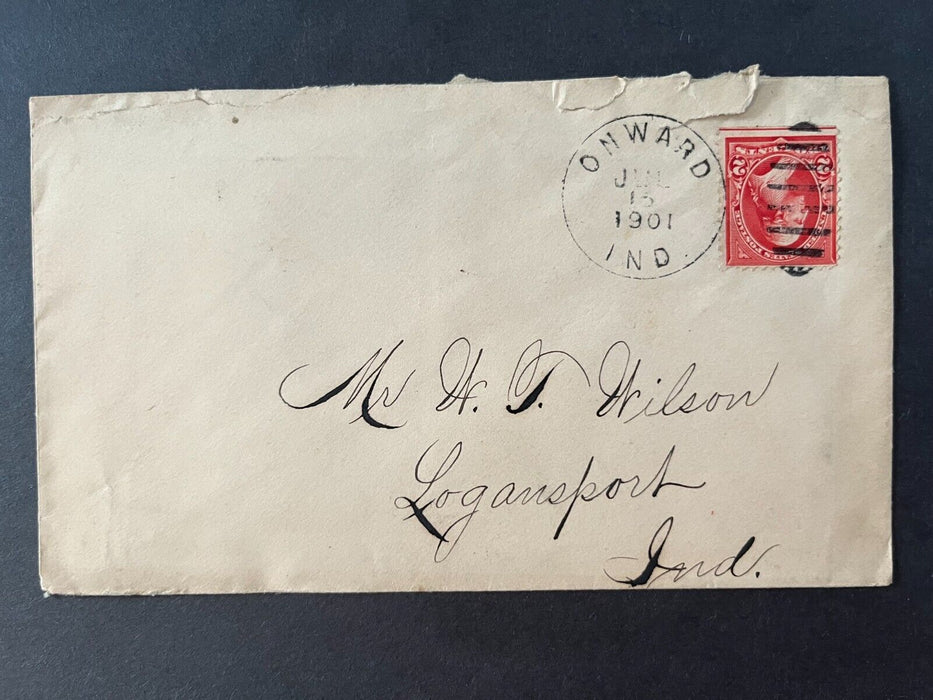 ONWARD
JUL
15
1901
IND.
Mr W. T. Wilson
Logansport
Ind.